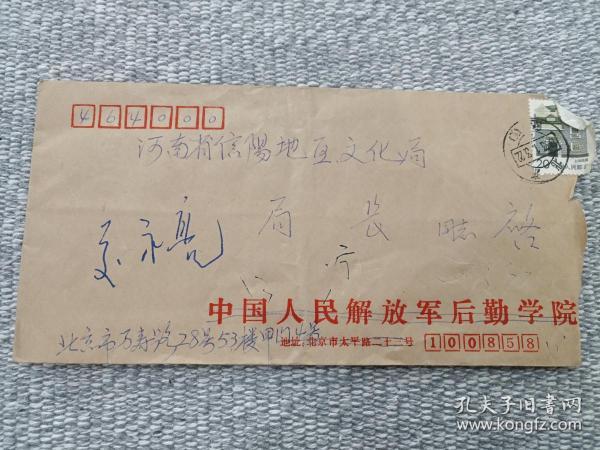 464000
河南省信陽地区文化局
局 長 同志 啓
中国人民解放军后勤学院
北京市万寿路28号53楼甲门4号
地址:北京市太平路二十三号 100858
20分
孔夫子旧書网
www.kongfz.com